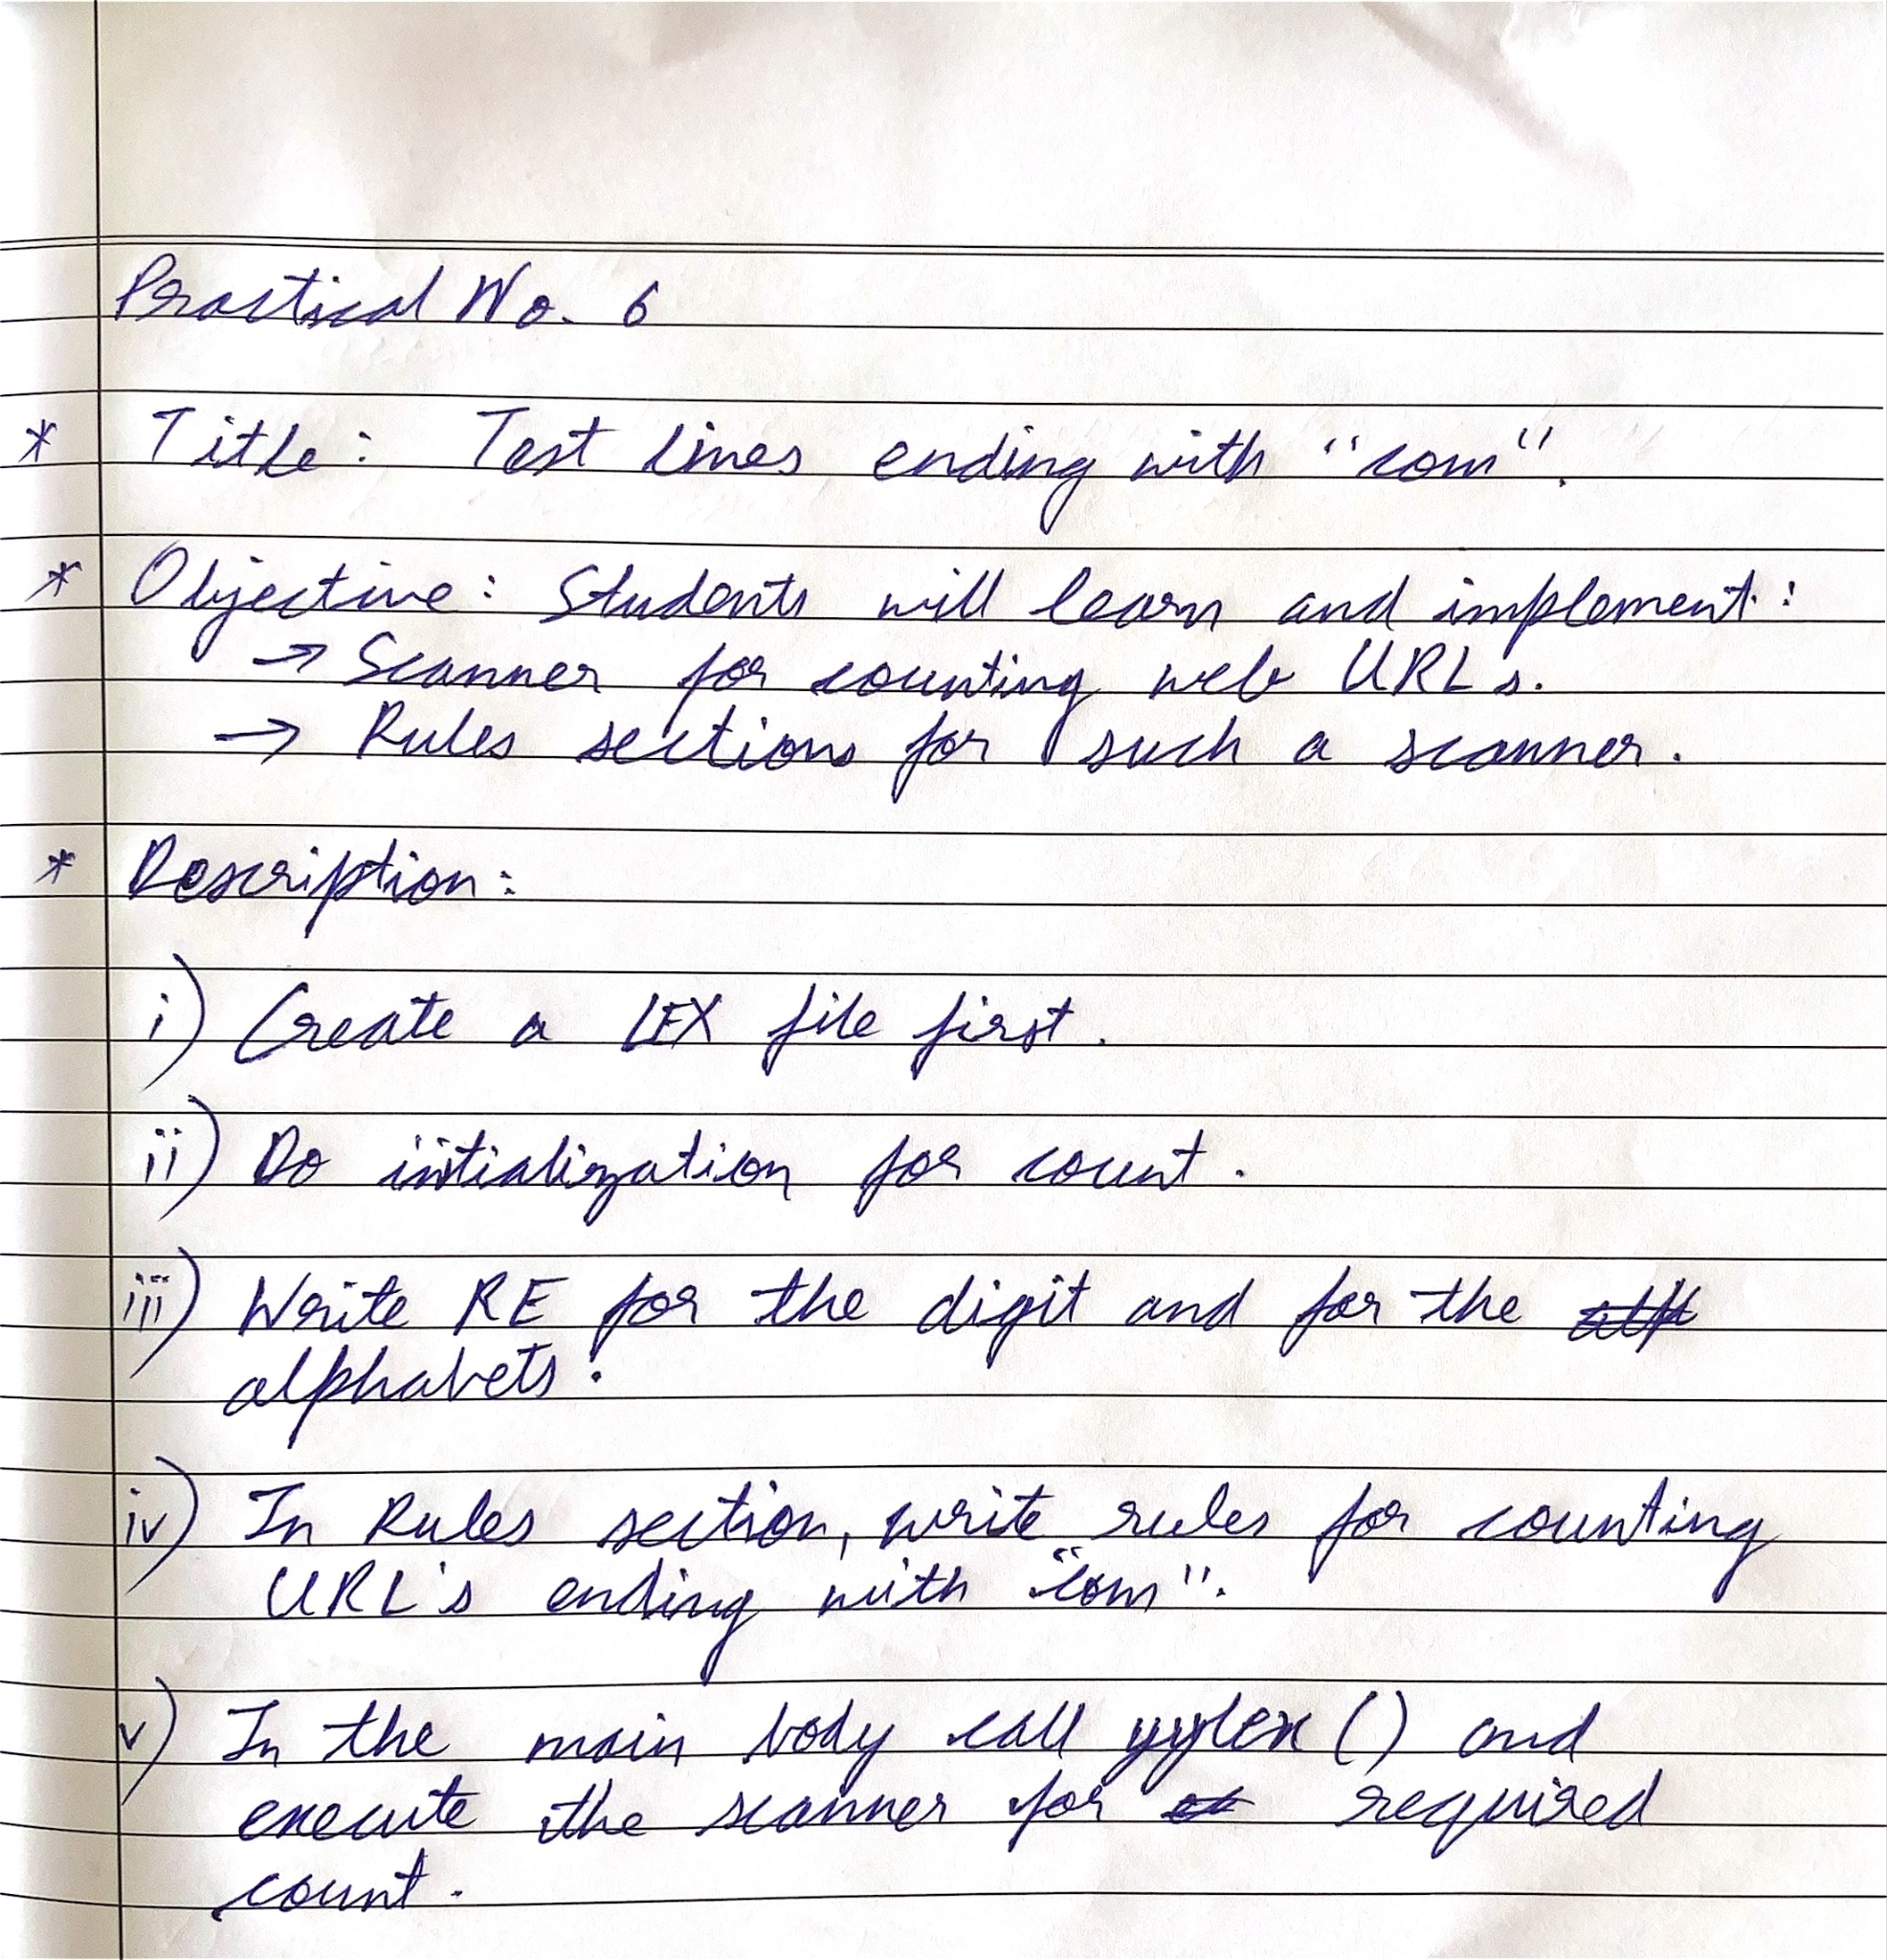 Practical No. 6
* Title: Test lines ending with "com".
* Objective: Students will learn and implement:
→ Scanner for counting web URLs.
→ Rules sections for such a scanner.
* Description:
i) Create a LEX file first.
ii) Do intialization for count.
iii) Write RE for the digit and for the
alphabets.
iv) In Rules section, write rules for counting
URL's ending with "com".
v) In the main body call yylex () and
execute the scanner for required
count.